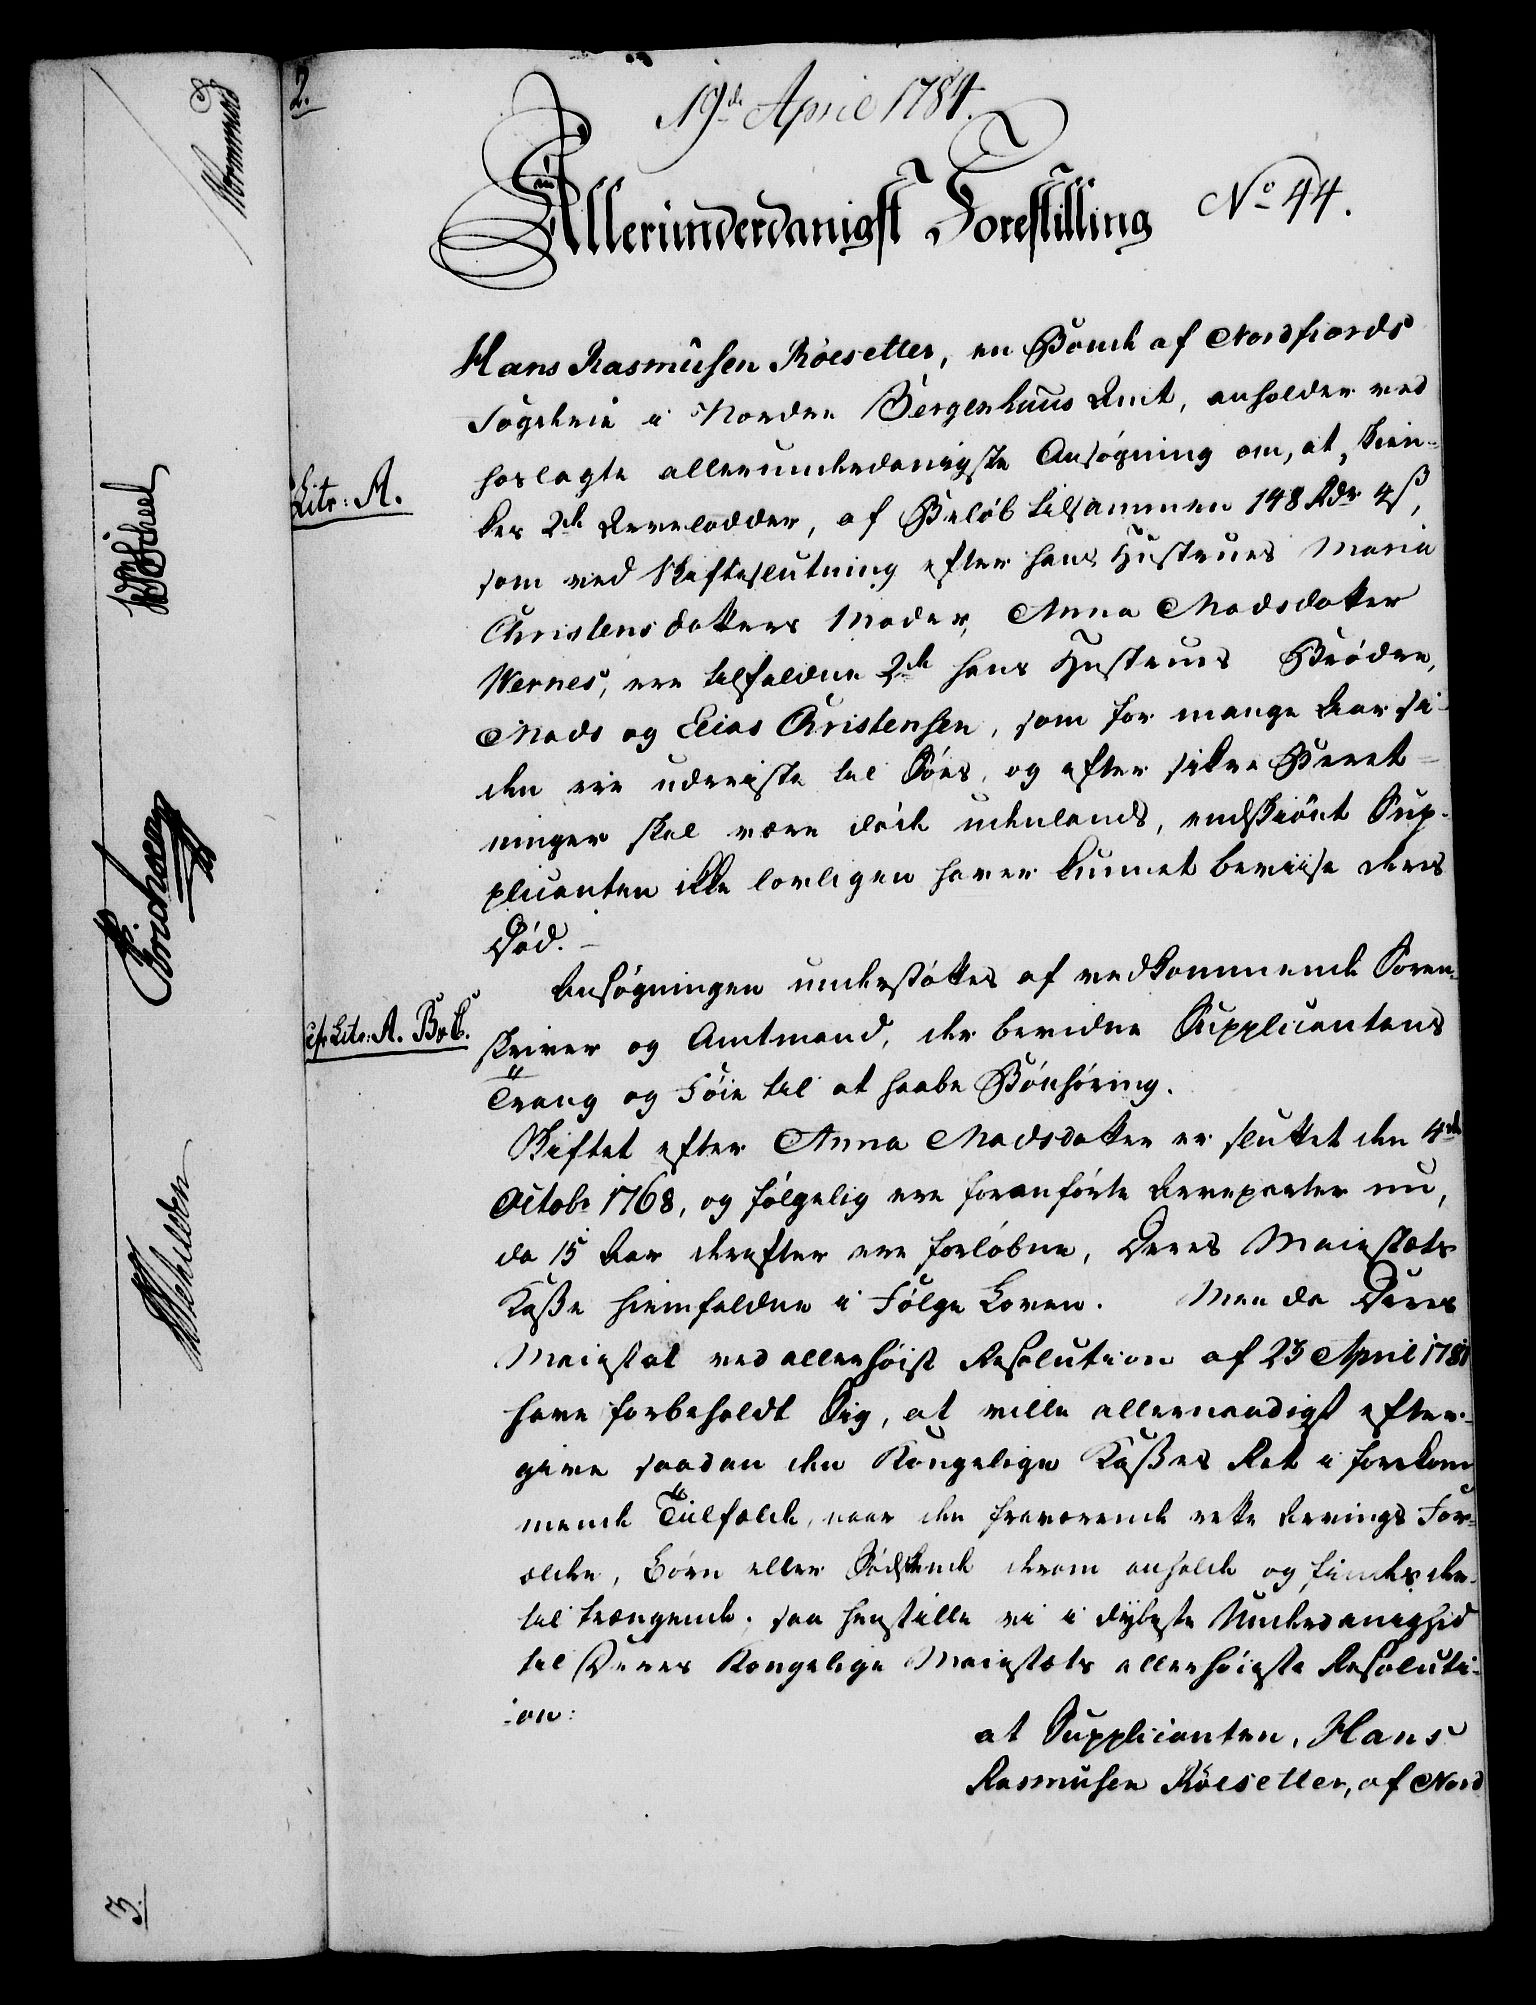 2.
19de April 1784.
Allerunderdanigst Forestilling No 44.
Hans Rasmusen Röesetter, en Bonde af Nordfiords
Fogderie i Nordre Bergenhuus Amt, anholder ved
hoslagte allerunderdanigste Ansøgning om, at skien-
Litr: A.
kes 2de Arvelodder, af Beløb tilsammen 148 Rdr 4 ß,
som ved Skifteslutning efter hans Hustrues Maria
Christensdatters Moder, Anna Madsdatter
Wernes, ere tilfaldne 2de hans Hustrues Brødre,
Mads og Elias Christensen, som for mange Aar si-
den ere udreiste til Søes, og efter sikre Beret-
ninger skal være døde udenlands, endskiønt Sup-
plicanten ikke lovligen haver kunnet beviise deres
Død.
Ansøgningen understøttes af vedkommende Soren-
cfr Litr: A. B & C.
skriver og Amtmand, der bevidne Supplicantens
Trang og Føie til at haabe Bønhøring.
Skiftet efter Anna Madsdatter er sluttet den 4de
Octobr 1768, og følgelig ere foranførte Arveparter nu,
da 15 Aar derefter ere forløbne, Deres Maiestæts
Kaße hiemfaldne i Følge Loven. Men da Deres
Maiestæt ved allerhøist Resolution af 23 April 1781
have forbeholdt Sig, at ville allernaadigst efter-
give saadan den Kongelige Kaßes Ret i forekom
mende Tilfælde, naar den fraværende rette Arvings For-
ældre, Børn eller Sødskende derom anholde og findes der-
til trængende; saa henstille vi i dybeste Underdanighed
til Deres Kongelige Maiestæts allerhøieste Resoluti-
-on:
at Supplicanten, Hans
Rasmusen Röesetter, af Nord
3.